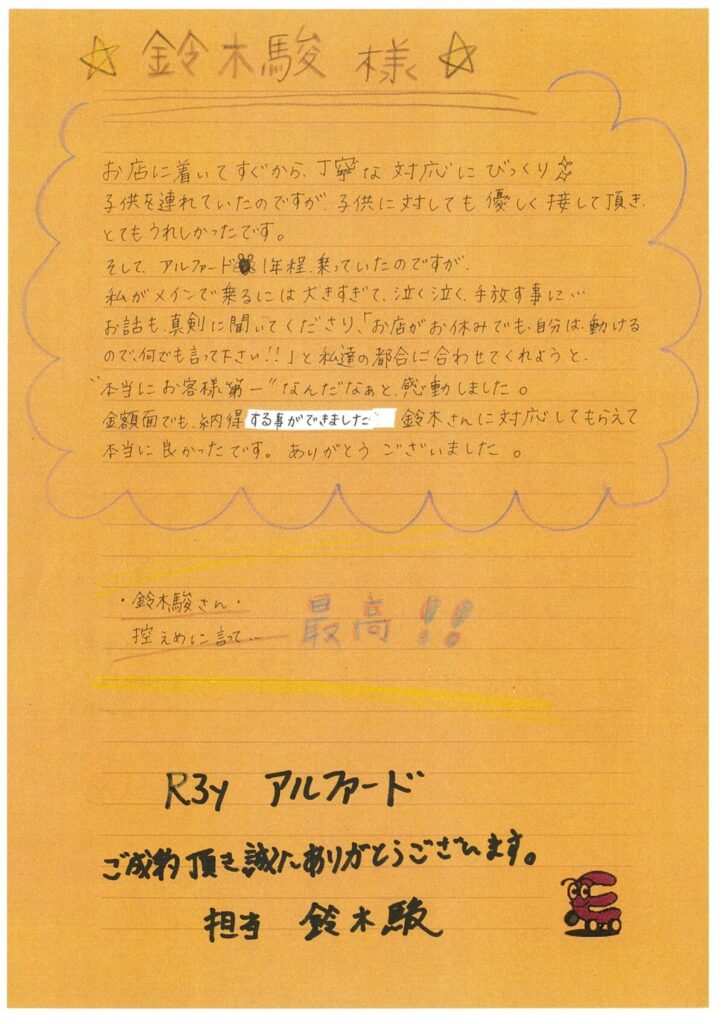 ☆ 鈴木駿 様 ☆
お店に着いてすぐから、丁寧な対応にびっくり
子供を連れていたのですが、子供に対しても優しく接して頂き、
とてもうれしかったです。
そして、アルファード 1年程、乗っていたのですが、
私がメインで乗るには大きすぎて、泣く泣く、手放す事に…
お話も、真剣に聞いてくださり、「お店がお休みでも、自分は動ける
ので、何でも言って下さい!!」と私達の都合に合わせてくれようと、
"本当にお客様第一"なんだなぁと、感動しました。
金額面でも、納得する事ができました 鈴木さんに対応してもらえて
本当に良かったです。ありがとうございました。
・鈴木駿さん・
控えめに言って… 最高!!
R3y アルファード
ご成約頂き誠にありがとうございます。
担当 鈴木駿